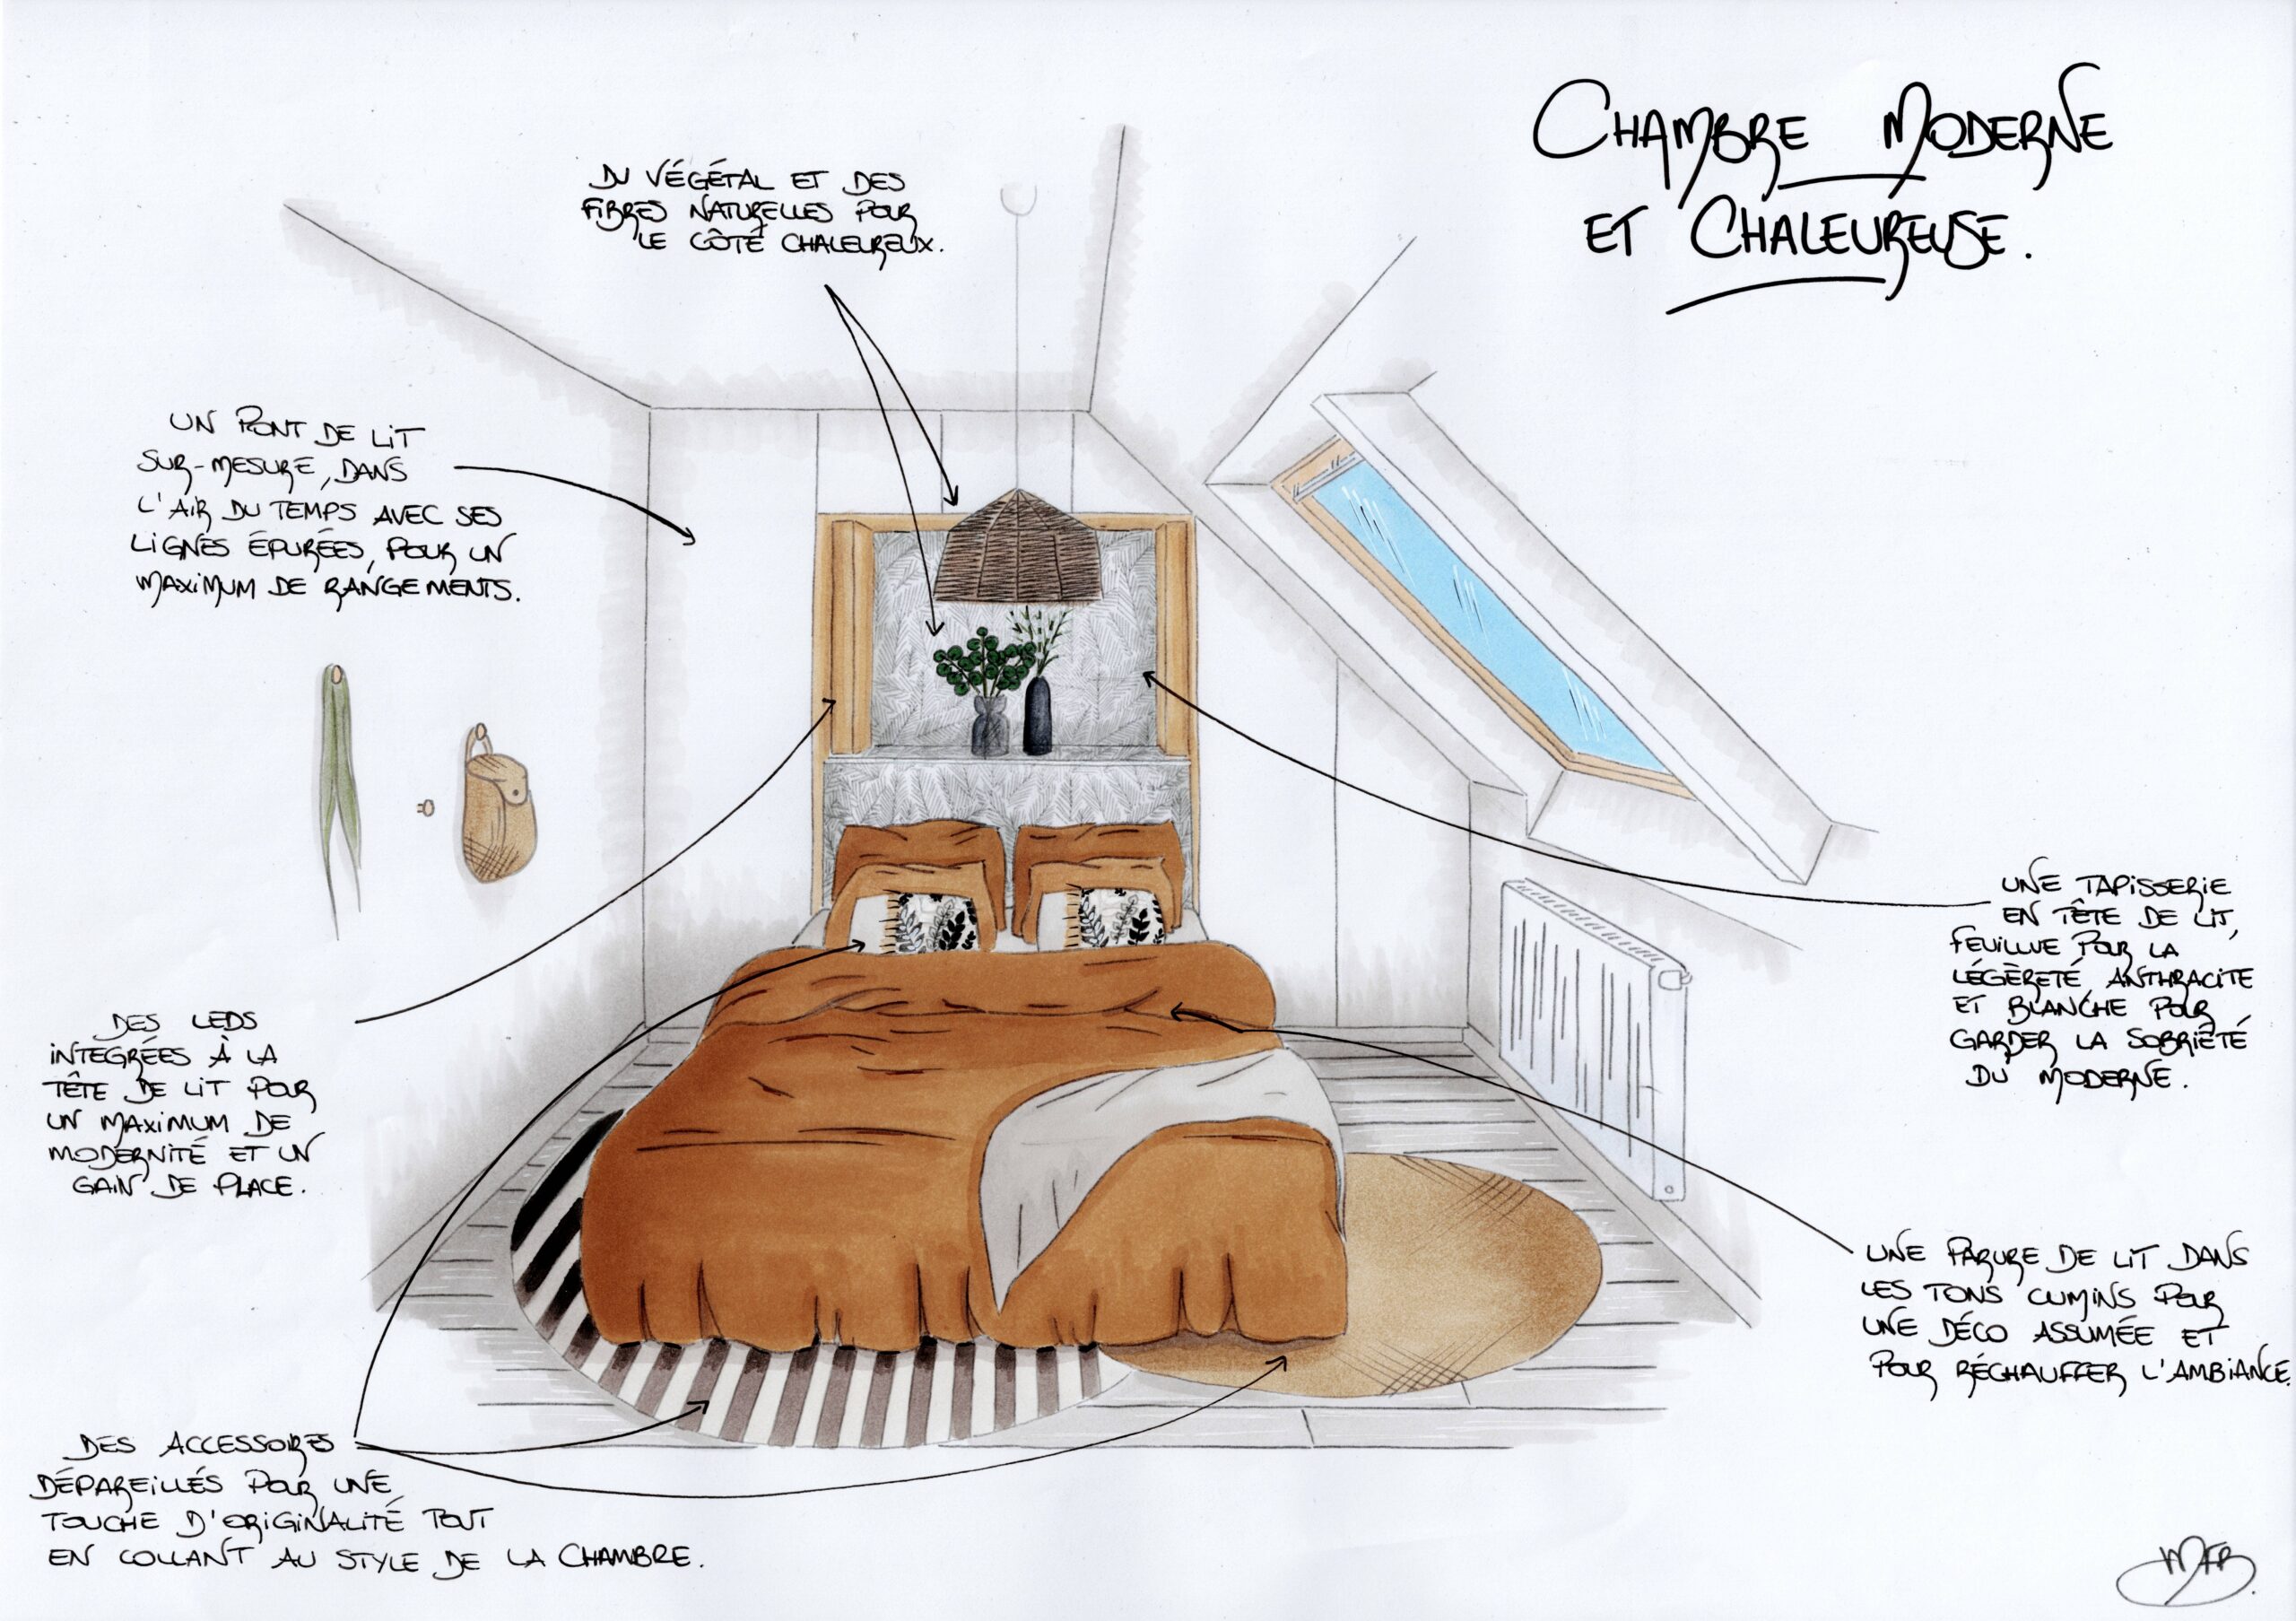 CHAMBRE MODERNE
ET CHALEUREUSE.
DU VÉGÉTAL ET DES
FIBRES NATURELLES POUR
LE CÔTÉ CHALEUREUX.
UN PONT DE LIT
SUR-MESURE, DANS
L'AIR DU TEMPS AVEC SES
LIGNES ÉPURÉES, POUR UN
MAXIMUM DE RANGEMENTS.
UNE TAPISSERIE
EN TÊTE DE LIT,
FEUILLUE POUR LA
LÉGÈRETÉ, ANTHRACITE
ET BLANCHE POUR
GARDER LA SOBRIÉTÉ
DU MODERNE.
DES LEDS
INTEGRÉES À LA
TÊTE DE LIT POUR
UN MAXIMUM DE
MODERNITÉ ET UN
GAIN DE PLACE.
UNE PARURE DE LIT DANS
LES TONS CUMINS POUR
UNE DÉCO ASSUMÉE ET
POUR RÉCHAUFFER L'AMBIANCE.
DES ACCESSOIRES
DÉPAREILLÉS POUR UNE
TOUCHE D'ORIGINALITÉ TOUT
EN COLLANT AU STYLE DE LA CHAMBRE.